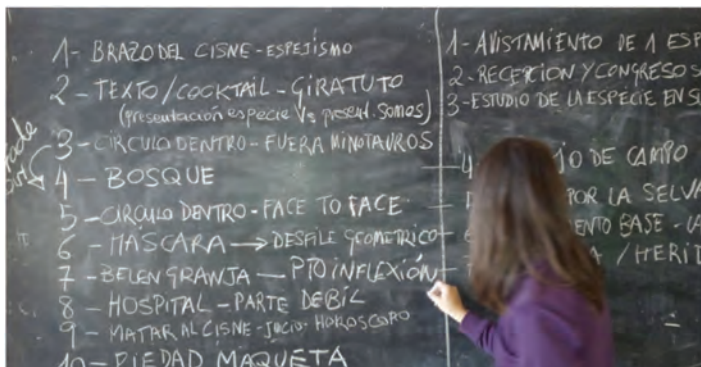 1- BRAZO DEL CISNE - ESPEJISMO
2 - TEXTO/COCKTAIL - GIRATUTO
(presentación especie Vs present. somos)
3 - CÍRCULO DENTRO - FUERA MINOTAUROS
4 - BOSQUE
5 - CÍRCULO DENTRO - FACE TO FACE
6 - MÁSCARA → DESFILE GEOMETRICO
7 - BELEN GRANJA — PTO INFLEXIÓN
8 - HOSPITAL - PARTE DEBIL
9 - MATAR AL CISNE - JUCIO - HOROSCOPO
10 - PIEDAD MAQUETA
1- AVISTAMIENTO DE 1 ESP
2- RECEPCION Y CONGRESO S
3- ESTUDIO DE LA ESPECIE EN SU
JO DE CAMPO
POR LA SELVA
ENTO BASE - LA
A / HERID